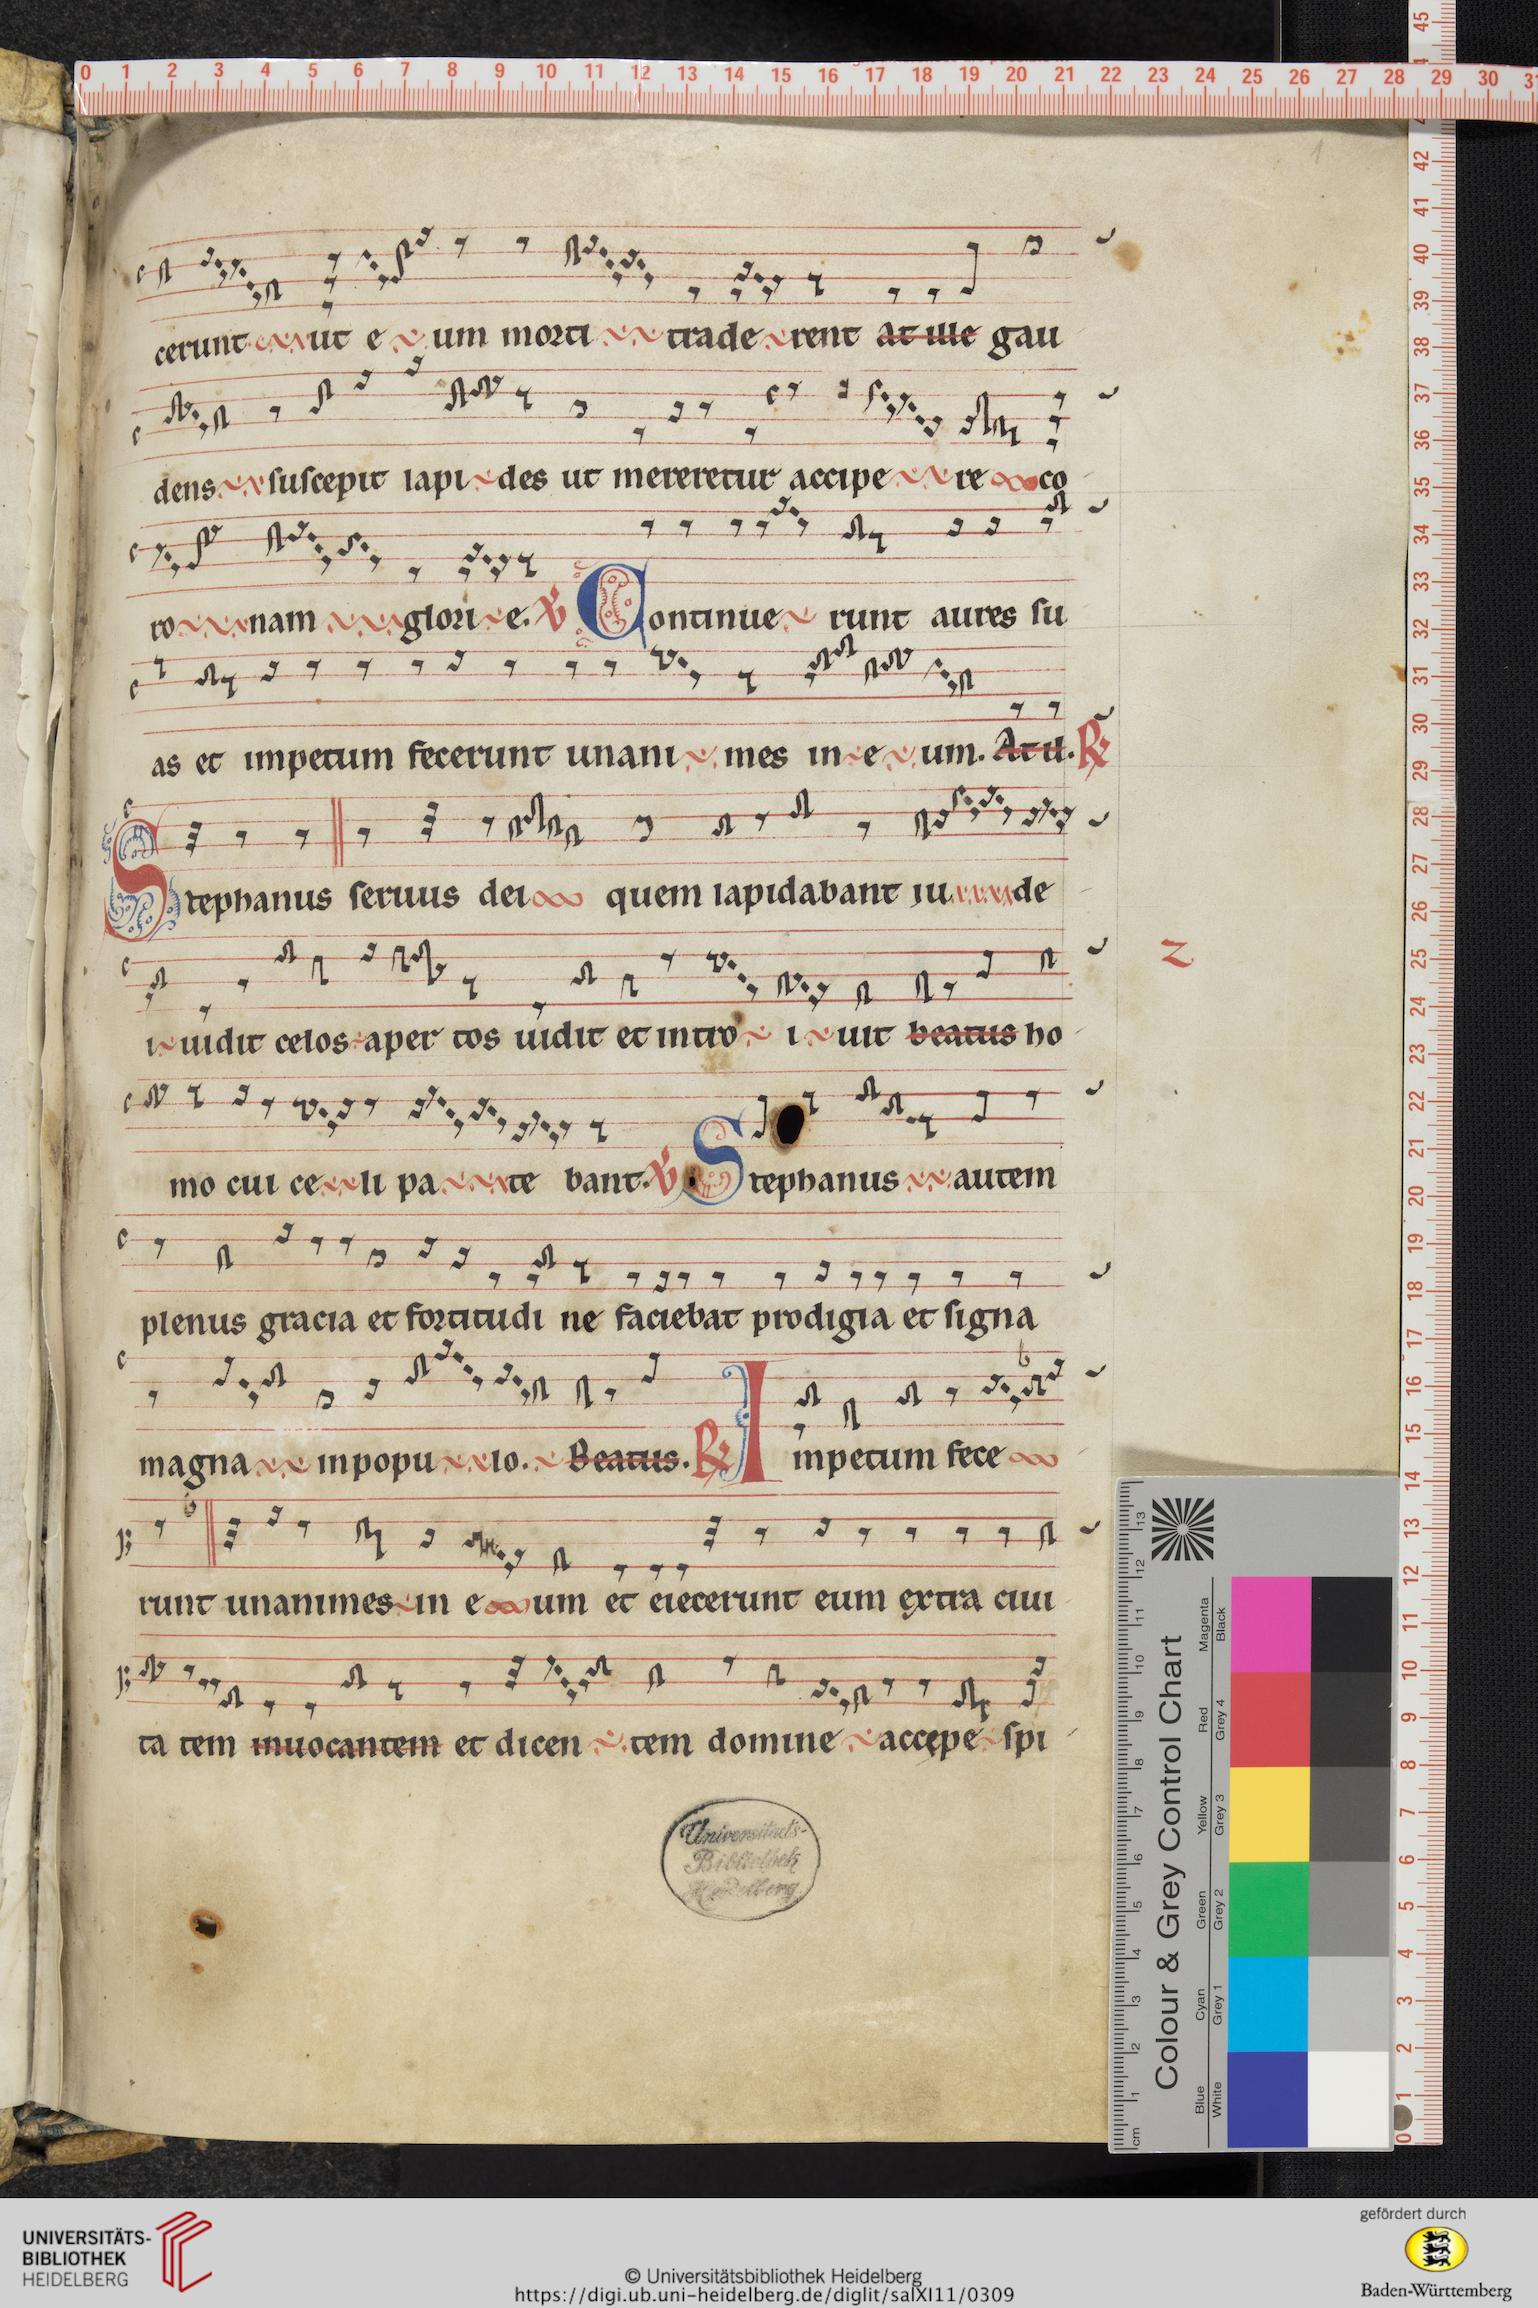 cerunt ut e um morti trade rent At ille gau
dens suscepit lapi des ut mereretur accipe re co
ro nam glori e. ℣ Continue runt aures su
as et impetum fecerunt unani mes in e um. At il. ℟
Stephanus seruus dei quem lapidabant iu de
i uidit celos aper tos uidit et intro i uit beatus ho
mo cui ce li pa te bant. ℣ Stephanus autem
plenus gracia et fortitudi ne faciebat prodigia et signa
magna in popu lo. Beatus. ℟ Impetum fece
runt unanimes in e um et eiecerunt eum extra ciui
ta tem inuocantem et dicen tem domine accepe spi
Universitäts-
Bibliothek
Heidelberg
0 1 2 3 4 5 6 7 8 9 10 11 12 13 14 15 16 17 18 19 20 21 22 23 24 25 26 27 28 29 30 31
45
42 41 40 39 38 37 36 35 34 33 32 31 30 29 28 27 26 25 24 23 22 21 20 19 18 17 16 15 14 13 12 11 10 9 8 7 6 5 4 3 2 1 0
Colour & Grey Control Chart
Blue Cyan Green Yellow Red Magenta
White Grey 1 Grey 2 Grey 3 Grey 4 Black
cm 1 2 3 4 5 6 7 8 9 10 11 12 13
UNIVERSITÄTS-
BIBLIOTHEK
HEIDELBERG
© Universitätsbibliothek Heidelberg
https://digi.ub.uni-heidelberg.de/diglit/salXI11/0309
gefördert durch
Baden-Württemberg